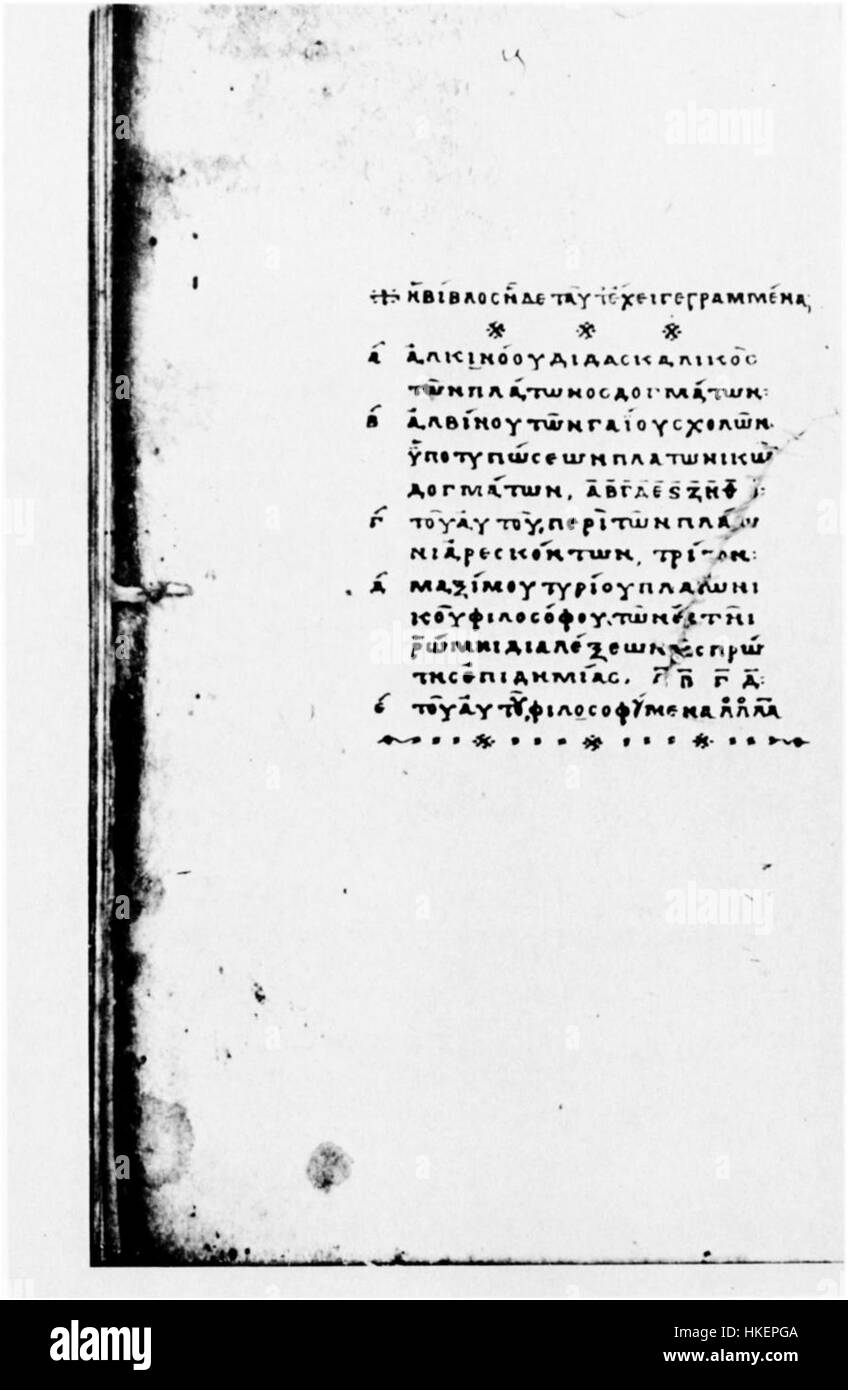 ἡ βίβλος ἥδε ταῦτ' ἔχει γεγραμμένα;
ά ἀλκινόου διδασκαλικὸς
τῶν πλάτωνος δογμάτων:
β́ ἀλβίνου τῶν γαΐου σχολῶν
ὑποτυπώσεων πλατωνικῶ
δογμάτων, Α Β Γ Δ Ε Ϛ Ζ Η Θ
γ́ τοῦ αὐτοῦ, περὶ τῶν πλάτω
νι ἀρεσκόντων, τρίτον:
δ́ μαξίμου τυρίου πλατωνι
κοῦ φιλοσόφου, τῶν ἐν
ῥώμηι διαλέξεων πρώ
της ἐπιδημίας, Β Γ Δ:
έ τοῦ αὐτοῦ, φιλοσοφούμενα
alamy
alamy
alamy
a
a
a
a
a
alamy
Image ID: HKEPGA
www.alamy.com